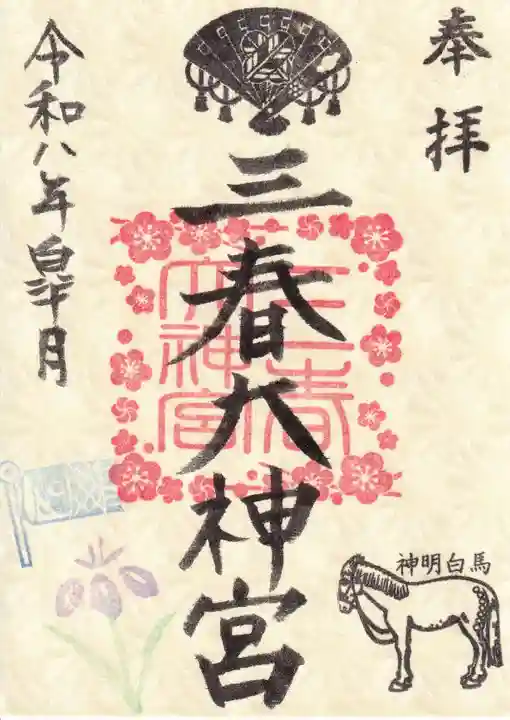 奉拝
三春大神宮
三春
大神宮
令和八年皐月
馬白明神